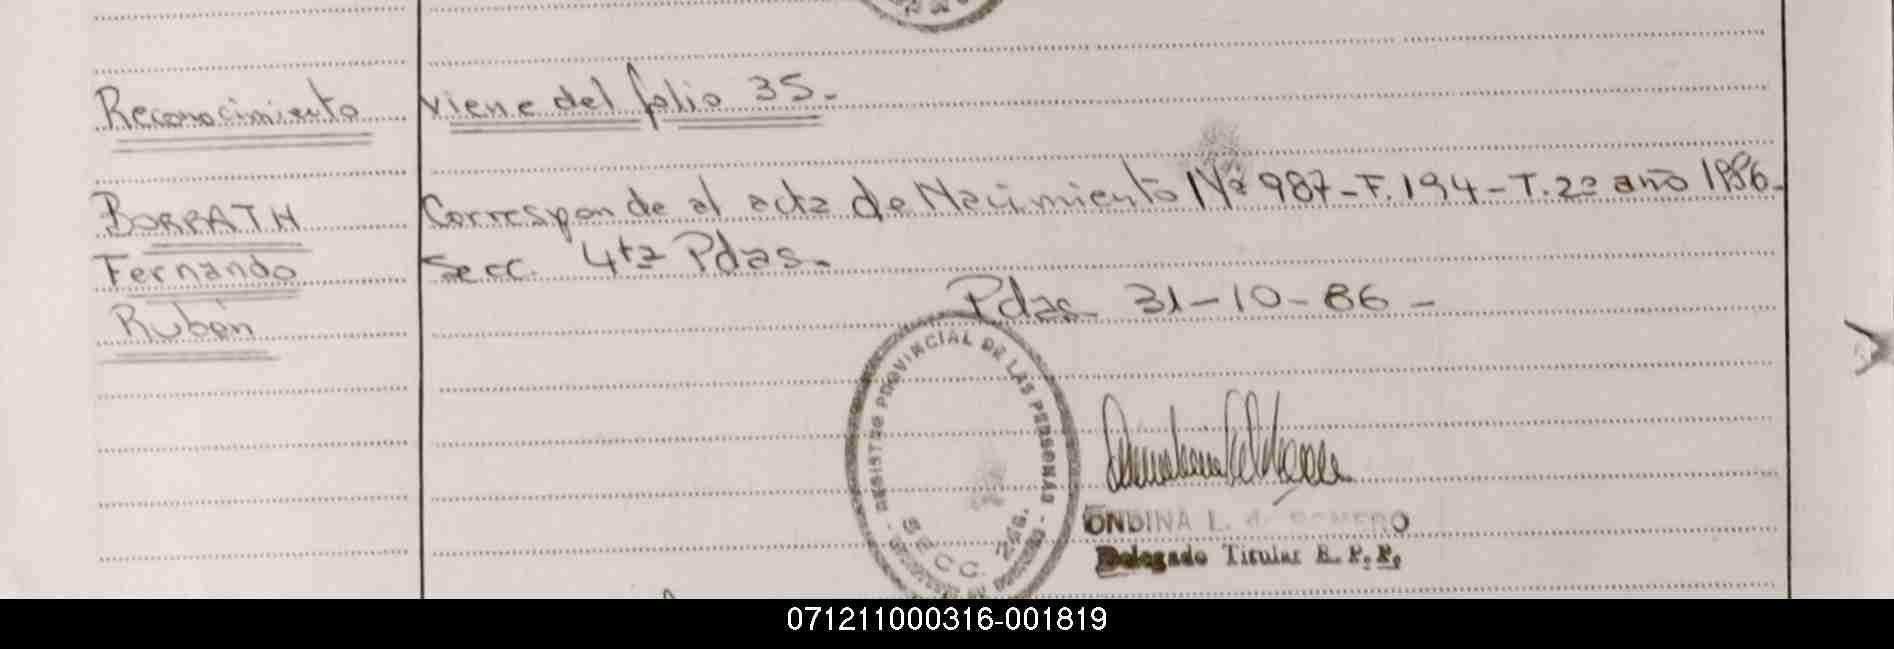 Reconocimiento viene del folio 35.-
BORRATH Corresponde al acta de Nacimiento Nº 987-F.194-T.2º año 1986-
Fernando Secc. 4ta Pdas.
Pdas 31-10-86-
Rubén
REGISTRO PROVINCIAL DE LAS PERSONAS
SECC.
ONDINA L. de ROMERO
Delegado Titular R. P. P.
071211000316-001819